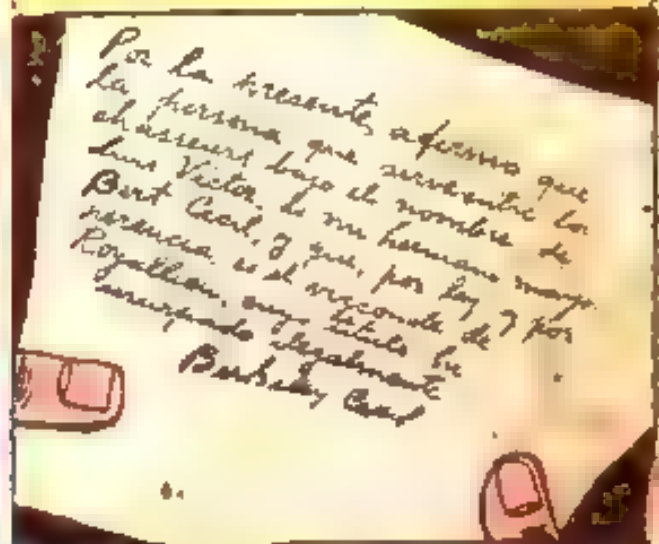 Por la presente, afirmo que
la persona que sirve entre los
chasseurs bajo el nombre de
Luis Victor, es mi hermano mayor
Bert Cecil, y que, por ley y por
herencia es el vizconde de
Royallieu, cuyo título he
usurpado ilegalmente
Berkeley Cecil